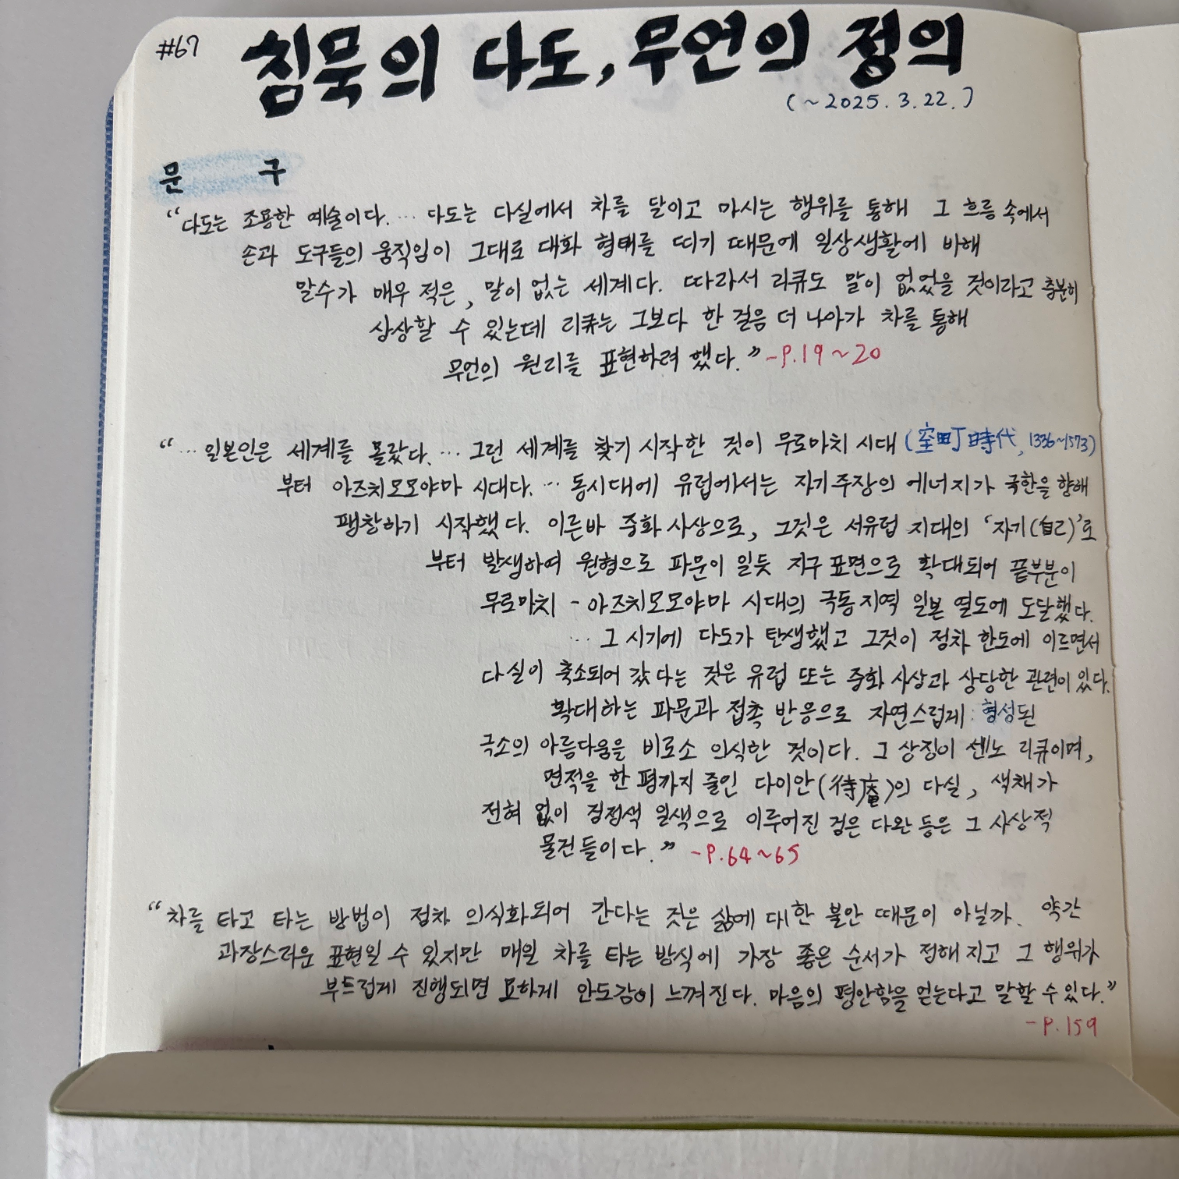 #67
침묵의 다도, 무언의 정의
(~2025.3.22.)
문 구
“다도는 조용한 예술이다. … 다도는 다실에서 차를 달이고 마시는 행위를 통해 그 흐름 속에서
손과 도구들의 움직임이 그대로 대화 형태를 띠기 때문에 일상생활에 비해
말수가 매우 적은, 말이 없는 세계다. 따라서 리큐도 말이 없었을 것이라고 충분히
상상할 수 있는데 리큐는 그보다 한 걸음 더 나아가 차를 통해
무언의 원리를 표현하려 했다.” -P.19~20
“…일본인은 세계를 몰랐다. … 그런 세계를 찾기 시작한 것이 무로마치 시대 (室町時代, 1336~1573)
부터 아즈치모모야마 시대다. … 동시대에 유럽에서는 자기주장의 에너지가 극한을 향해
팽창하기 시작했다. 이른바 중화 사상으로, 그것은 서유럽 지대의 ‘자기(自己)’로
부터 발생하여 원형으로 파문이 일듯 지구 표면으로 확대되어 끝부분이
무로마치 - 아즈치모모야마 시대의 극동지역 일본 열도에 도달했다.
… 그 시기에 다도가 탄생했고 그것이 점차 한도에 이르면서
다실이 축소되어 갔다는 것은 유럽 또는 중화 사상과 상당한 관련이 있다.
확대하는 파문과 접촉 반응으로 자연스럽게 형성된
극소의 아름다움을 비로소 의식한 것이다. 그 상징이 센노 리큐이며,
면적을 한 평까지 줄인 다이안(待庵)의 다실, 색채가
전혀 없이 검정색 일색으로 이루어진 검은 다완 등은 그 사상적
물건들이다.” -P.64~65
“차를 타고 타는 방법이 점차 의식화되어 간다는 것은 삶에 대한 불안 때문이 아닐까. 약간
과장스러운 표현일 수 있지만 매일 차를 타는 방식에 가장 좋은 순서가 정해지고 그 행위가
부드럽게 진행되면 묘하게 안도감이 느껴진다. 마음의 평안함을 얻는다고 말할 수 있다.”
-P.159